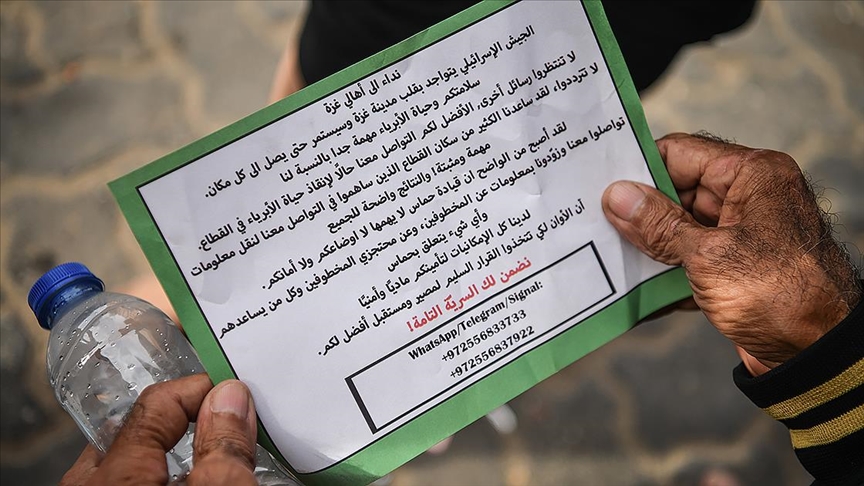 نداء الى أهالي غزة
الجيش الإسرائيلي يتواجد بقلب مدينة غزة وسيستمر حتى يصل الى كل مكان.
سلامتكم وحياة الأبرياء مهمة جدا بالنسبة لنا
لا تنتظروا رسائل أخرى، الأفضل لكم التواصل معنا حالًا لإنقاذ حياة الأبرياء في القطاع.
لا تترددوا، لقد ساعدنا الكثير من سكان القطاع الذين ساهموا في التواصل معنا لنقل معلومات
مهمة ومثبتة! والنتائج واضحة للجميع
لقد أصبح من الواضح ان قيادة حماس لا يهمها لا اوضاعكم ولا أمانكم.
تواصلوا معنا وزوّدونا بمعلومات عن المخطوفين، وعن محتجزي المخطوفين وكل من يساعدهم
وأي شيء يتعلق بحماس
لدينا كل الإمكانيات لتأمينكم ماديًا وأمنيًا
آن الأوان لكي تتخذوا القرار السليم لمصير ومستقبل أفضل لكم.
نضمن لك السريّة التامة!
WhatsApp/Telegram/Signal:
+972556833733
+972556837922